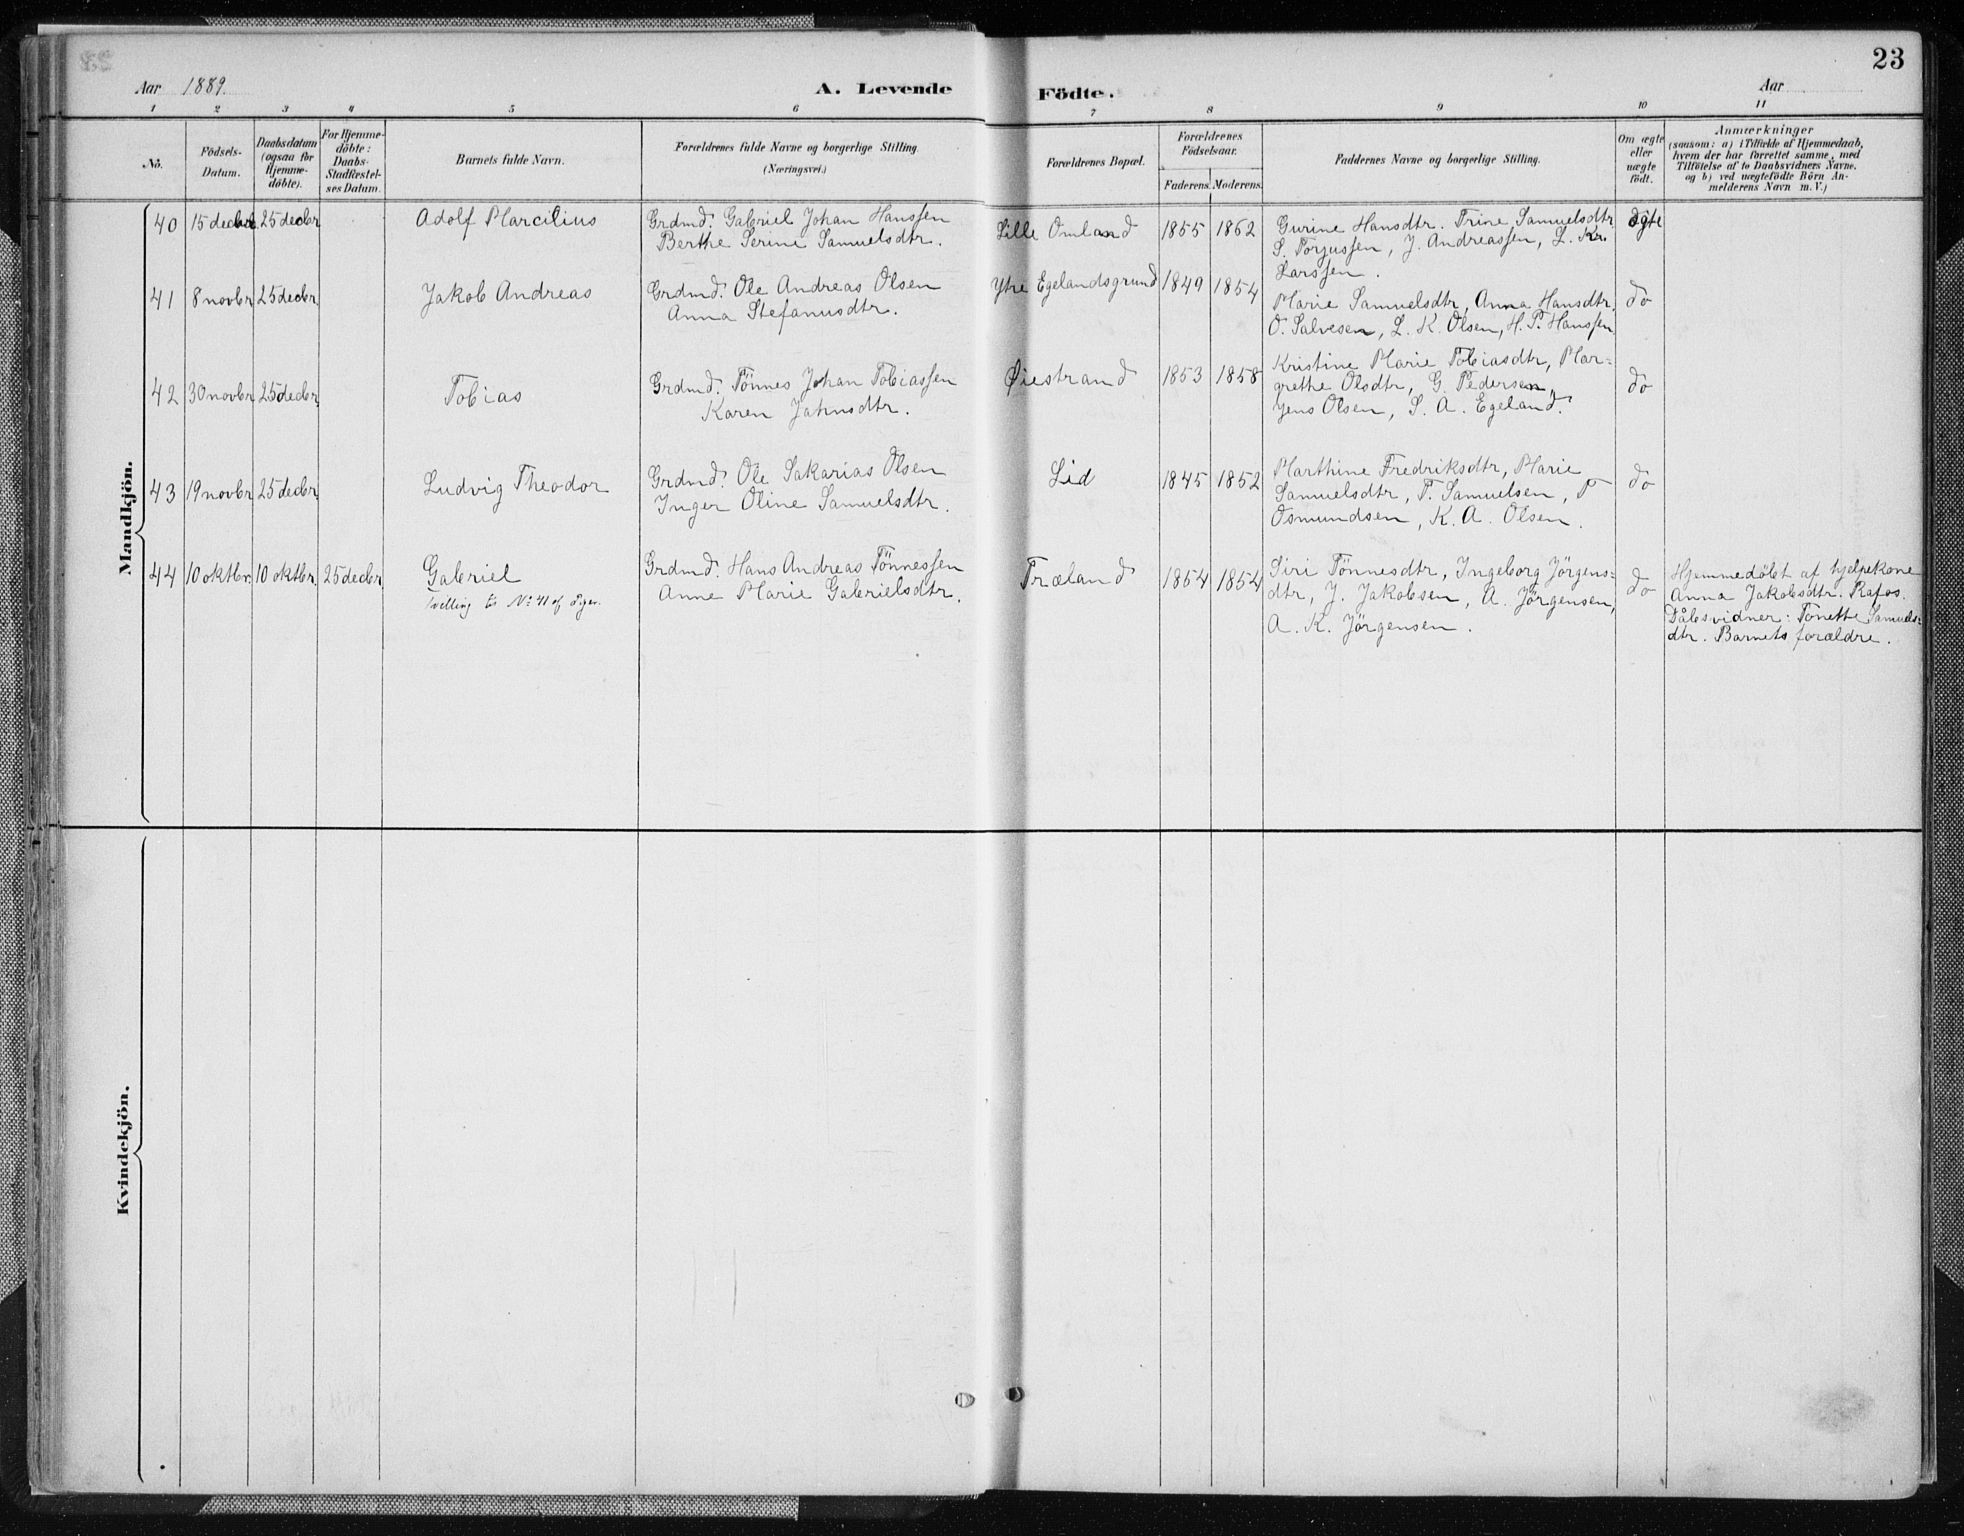 23
Aar 1889. A. Levende Födte. Aar
1 2 3 4 5 6 7 8 9 10 11
No.
Födsels-
Datum.
Daabsdatum
(ogsaa for
Hjemme-
döbte).
For Hjemme-
döbte:
Daabs-
Stadfæstel-
ses Datum.
Barnets fulde Navn.
Forældrenes fulde Navne og borgerlige Stilling.
(Næringsvei.)
Forældrenes Bopæl.
Forældrenes
Födselsaar.
Faderens. Moderens.
Faddernes Navne og borgerlige Stilling.
Om ægte
eller
uægte
födt.
Anmærkninger
(saasom: a) i Tilfælde af Hjemmedaab,
hvem der har forrettet samme, med
Tilföielse af to Daabsvidners Navne.
og b) ved uægtefödte Börn An-
melderens Navn m. V.)
Mandkjön.
40 15 decbr 25 decbr Adolf Marcilius
Grdmd. Gabriel Johan Hanssen
Berthe Serine Samuelsdtr.
Lille Omland 1855 1862
Gurine Hansdtr. Trine Samuelsdtr
S. Torjussen, J. Andreassen, L. Kr.
Larssen.
ægte
41 8 novbr 25 decbr Jakob Andreas
Grdmd. Ole Andreas Olsen
Anna Stefanusdtr.
Ytre Egelandsgrund 1849 1854
Marie Samuelsdtr, Anna Hansdtr,
O. Salvesen, L. K. Olsen, H. P. Hanssen
do
42 30 novbr 25 decbr. Tobias
Grdmd. Tönnes Johan Tobiassen
Karen Jahnsdtr.
Øiestrand 1853 1858
Kristine Marie Tobiasdtr, Mar-
grethe Olsdtr, G. Pedersen,
Jens Olsen, S. A. Egeland.
do
43 19 novbr 25 decbr Ludvig Theodor
Grdmd. Ole Sakarias Olsen
Inger Oline Samuelsdtr.
Lid 1845 1852
Marthine Fredriksdtr, Marie
Samuelsdtr, T. Samuelsen, T
Osmundsen, K. A. Olsen.
do
44 10 oktbr. 10 oktbr. 25 decbr. Gabriel
Tvilling til No 41 af Piger.
Grdmd. Hans Andreas Tönnessen
Anne Marie Gabrielsdtr.
Træland 1854 1854
Siri Tönnesdtr, Ingeborg Jörgens-
dtr, J. Jakobsen, A. Jörgensen,
A. K. Jörgensen.
do
Hjemmedöbt af hjelpekone
Anna Jakobsdtr. Rafos.
Dåbsvidner: Tonette Samuels-
dtr. Barnets forældre.
Kvindekjön.